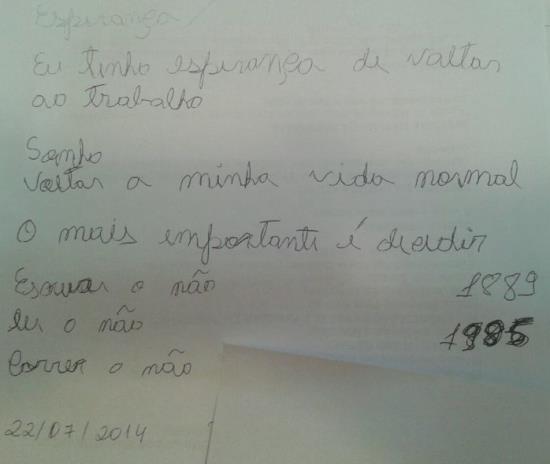 Esperança
Eu tinho esperança de valtar
ao trabalho
Sonho
Valtar a minha vida normal
O mais importanti é decidir
Escrever o não 1889
ler o não 1985
Correr o não
22/07/2014